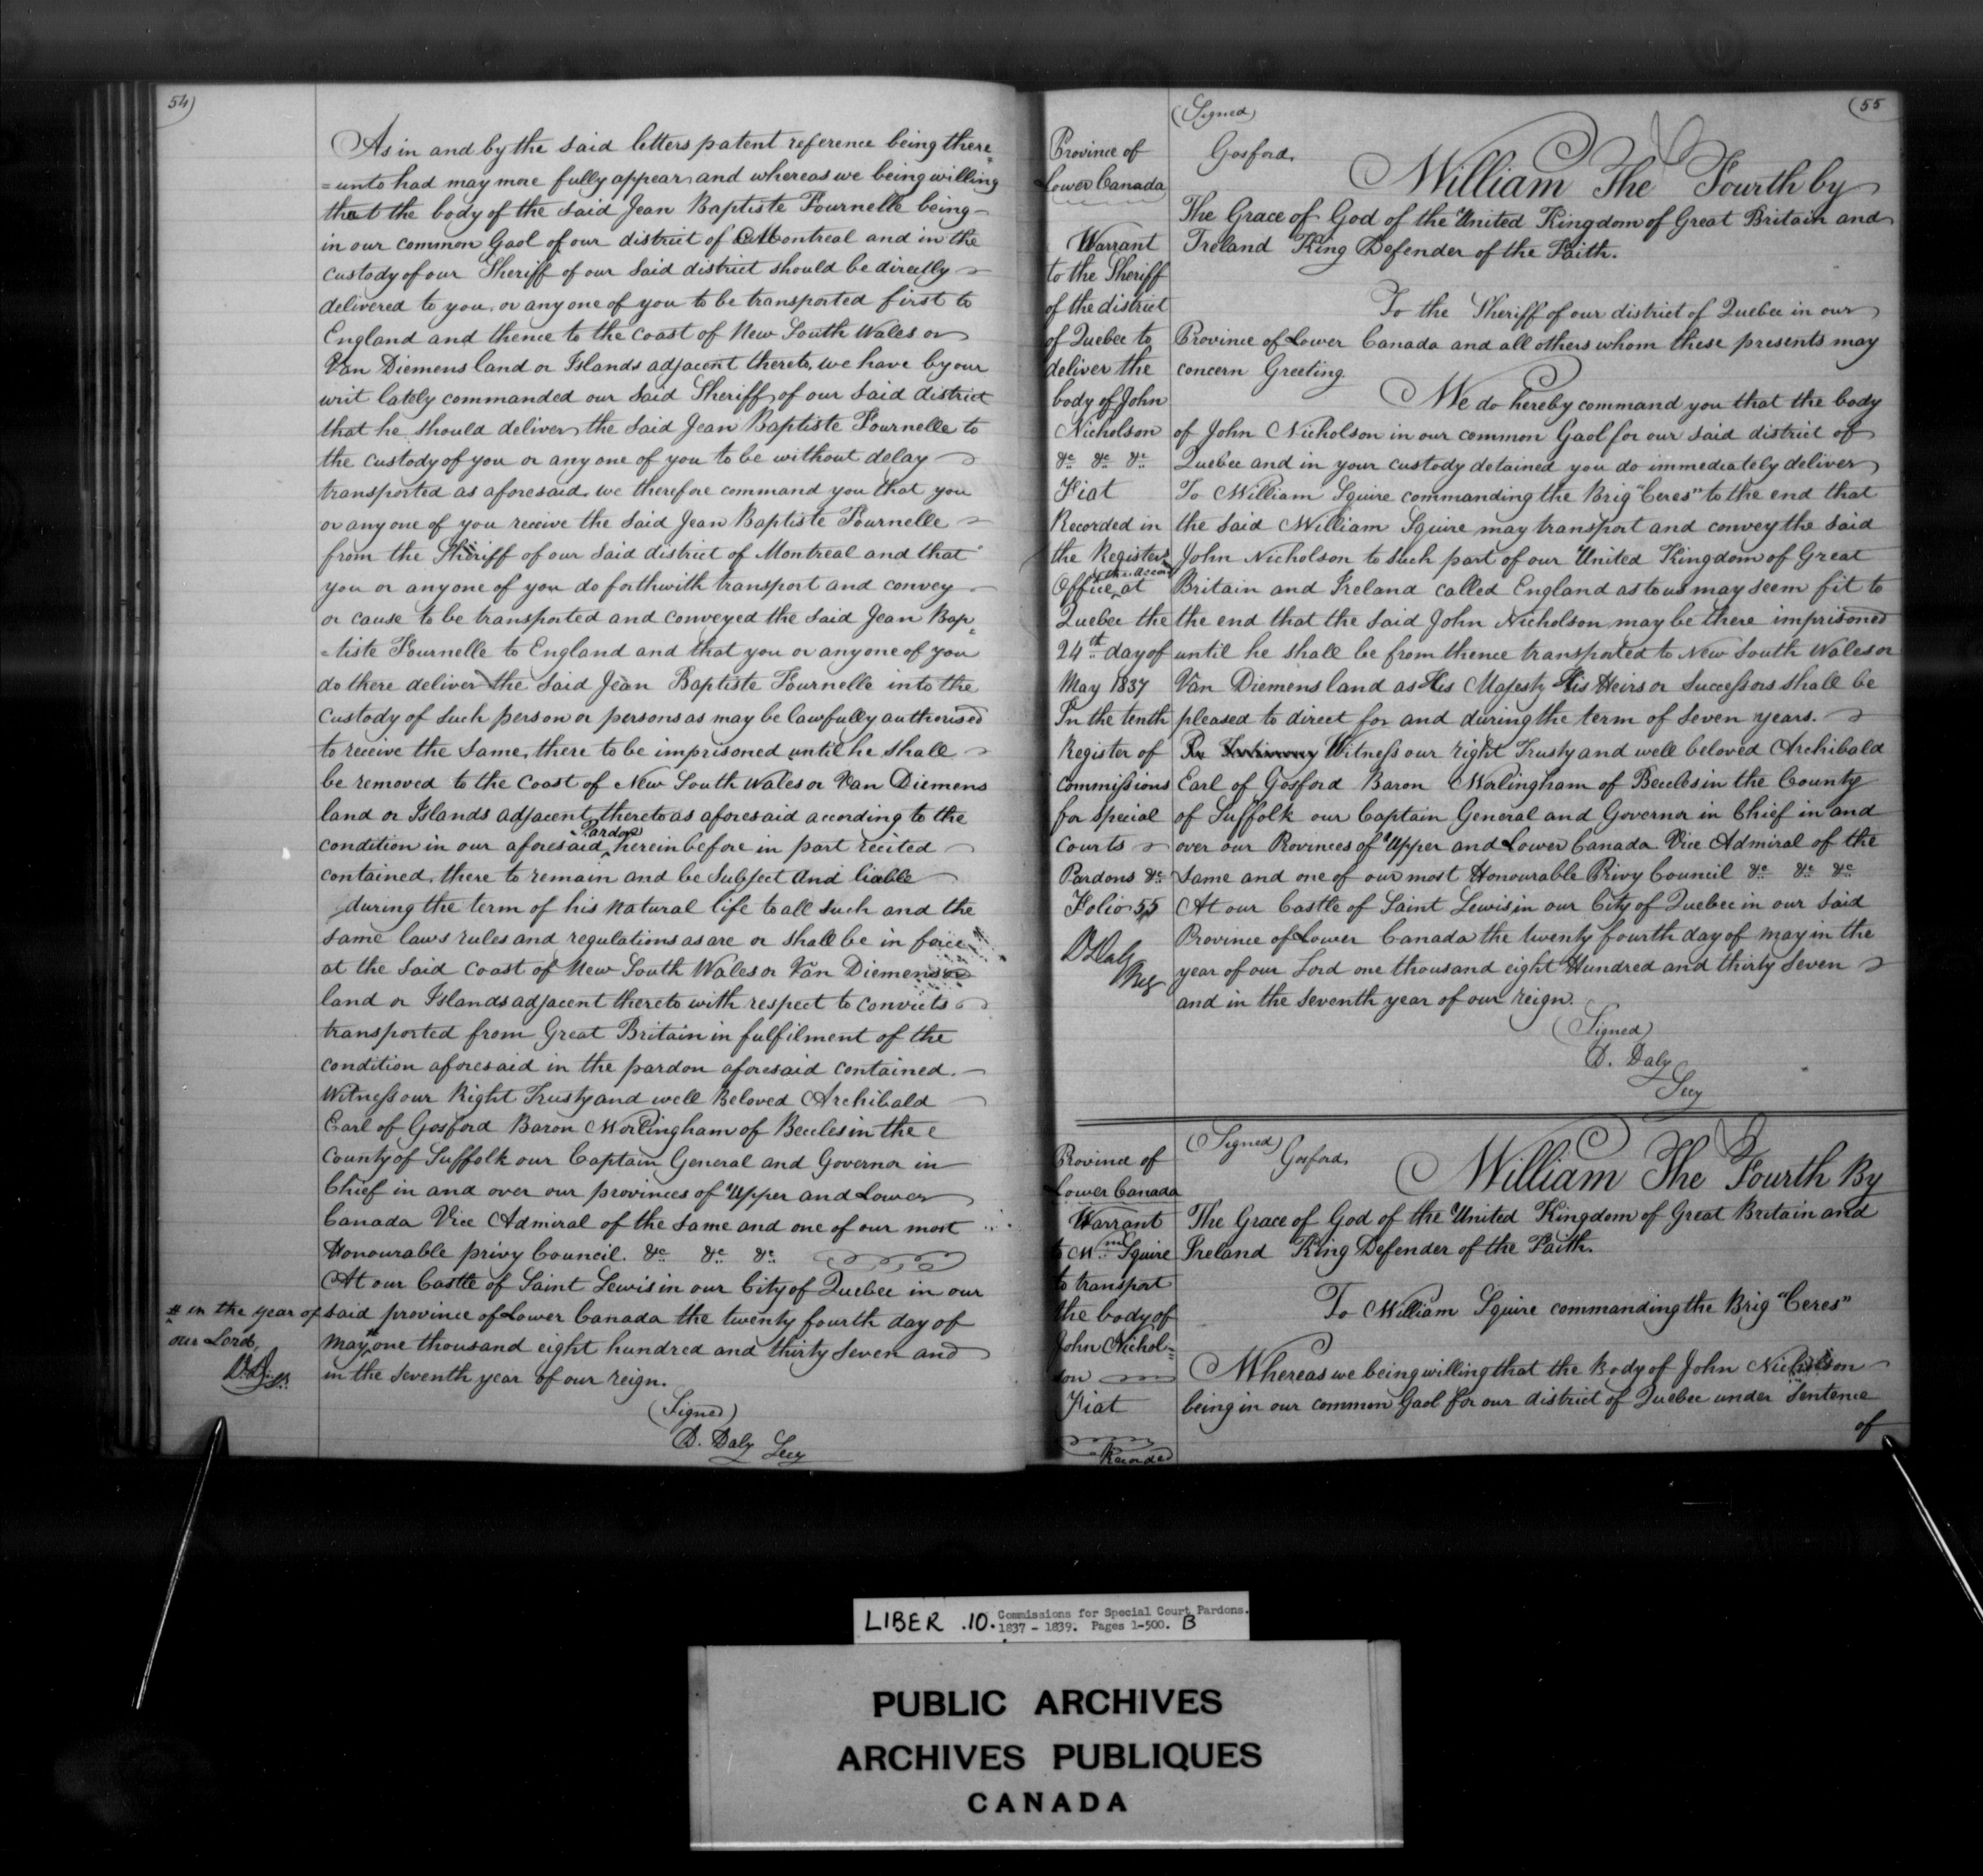 54)
As in and by the said letters patent reference being there
=unto had may more fully appear and whereas we being willing
that the body of the said Jean Baptiste Fournelle being
in our common Gaol of our district of Montreal and in the
custody of our Sheriff of our said district should be directly
delivered to you, or any one of you to be transported first to
England and thence to the coast of New South Wales or
Van Diemens land or Islands adjacent thereto, we have by our
writ lately commanded our said Sheriff of our said district
that he should deliver the said Jean Baptiste Fournelle to
the custody of you or any one of you to be without delay
transported as aforesaid, we therefore command you that you
or any one of you receive the said Jean Baptiste Fournelle
from the Sheriff of our said district of Montreal and that
you or any one of you do forthwith transport and convey
or cause to be transported and conveyed the said Jean Bap
=tiste Fournelle to England and that you or any one of you
do there deliver the said Jean Baptiste Fournelle into the
custody of such person or persons as may be lawfully authorised
to receive the same, there to be imprisoned until he shall
be removed to the coast of New South Wales or Van Diemens
land or Islands adjacent thereto as aforesaid according to the
condition in our aforesaid Pardon herein before in part recited
contained, there to remain and be subject and liable
during the term of his natural life to all such and the
same laws rules and regulations as are or shall be in force
at the said coast of New South Wales or Van Diemens
land or Islands adjacent thereto with respect to convicts
transported from Great Britain in fulfilment of the
condition aforesaid in the pardon aforesaid contained.
Witness our Right Trusty and well Beloved Archibald
Earl of Gosford Baron Worlingham of Beccles in the
County of Suffolk our Captain General and Governor in
Chief in and over our provinces of Upper and Lower
Canada Vice Admiral of the same and one of our most
Honourable privy Council. &c &c &c
At our Castle of Saint Lewis in our City of Quebec in our
said province of Lower Canada the twenty fourth day of
May # one thousand eight hundred and thirty seven and
in the seventh year of our reign.
(Signed)
D. Daly Secy
# in the year of
our Lord,
(55
Province of
Lower Canada
Warrant
to the Sheriff
of the district
of Quebec to
deliver the
body of John
Nicholson
&c &c &c
Fiat
Recorded in
the Register
Office at
Quebec the
24th day of
May 1837
In the tenth
Register of
Commissions
for special
Courts
Pardons &c
Folio 55
D Daly
Reg
(Signed)
Gosford.
William The Fourth by
The Grace of God of the United Kingdom of Great Britain and
Ireland King Defender of the Faith.
To the Sheriff of our district of Quebec in our
Province of Lower Canada and all others whom these presents may
concern Greeting.
We do hereby command you that the body
of John Nicholson in our common Gaol for our said district of
Quebec and in your custody detained you do immediately deliver
To William Squire commanding the Brig "Ceres" to the end that
the said William Squire may transport and convey the said
John Nicholson to such part of our United Kingdom of Great
Britain and Ireland called England as to us may seem fit to
the end that the said John Nicholson may be there imprisoned
until he shall be from thence transported to New South Wales or
Van Diemens land as His Majesty His Heirs or Successors shall be
pleased to direct for and during the term of seven years.
In Testimony Witness our right Trusty and well beloved Archibald
Earl of Gosford Baron Worlingham of Beccles in the County
of Suffolk our Captain General and Governor in Chief in and
over our Provinces of Upper and Lower Canada Vice Admiral of the
same and one of our most Honourable Privy Council &c &c &c
At our Castle of Saint Lewis in our City of Quebec in our said
Province of Lower Canada the twenty fourth day of May in the
year of our Lord one thousand eight Hundred and thirty seven
and in the seventh year of our reign.
(Signed)
D. Daly
Secy
Province of
Lower Canada
Warrant
to Wm Squire
to transport
the body of
John Nichol=
son
Fiat
Recorded
(Signed) Gosford.
William The Fourth By
The Grace of God of the United Kingdom of Great Britain and
Ireland King Defender of the Faith.
To William Squire commanding the Brig "Ceres"
Whereas we being willing that the Body of John Nicholson
being in our common Gaol for our district of Quebec under Sentence
of
LIBER .10. Commissions for Special Court Pardons.
1837 - 1839. Pages 1-500. B
PUBLIC ARCHIVES
ARCHIVES PUBLIQUES
CANADA